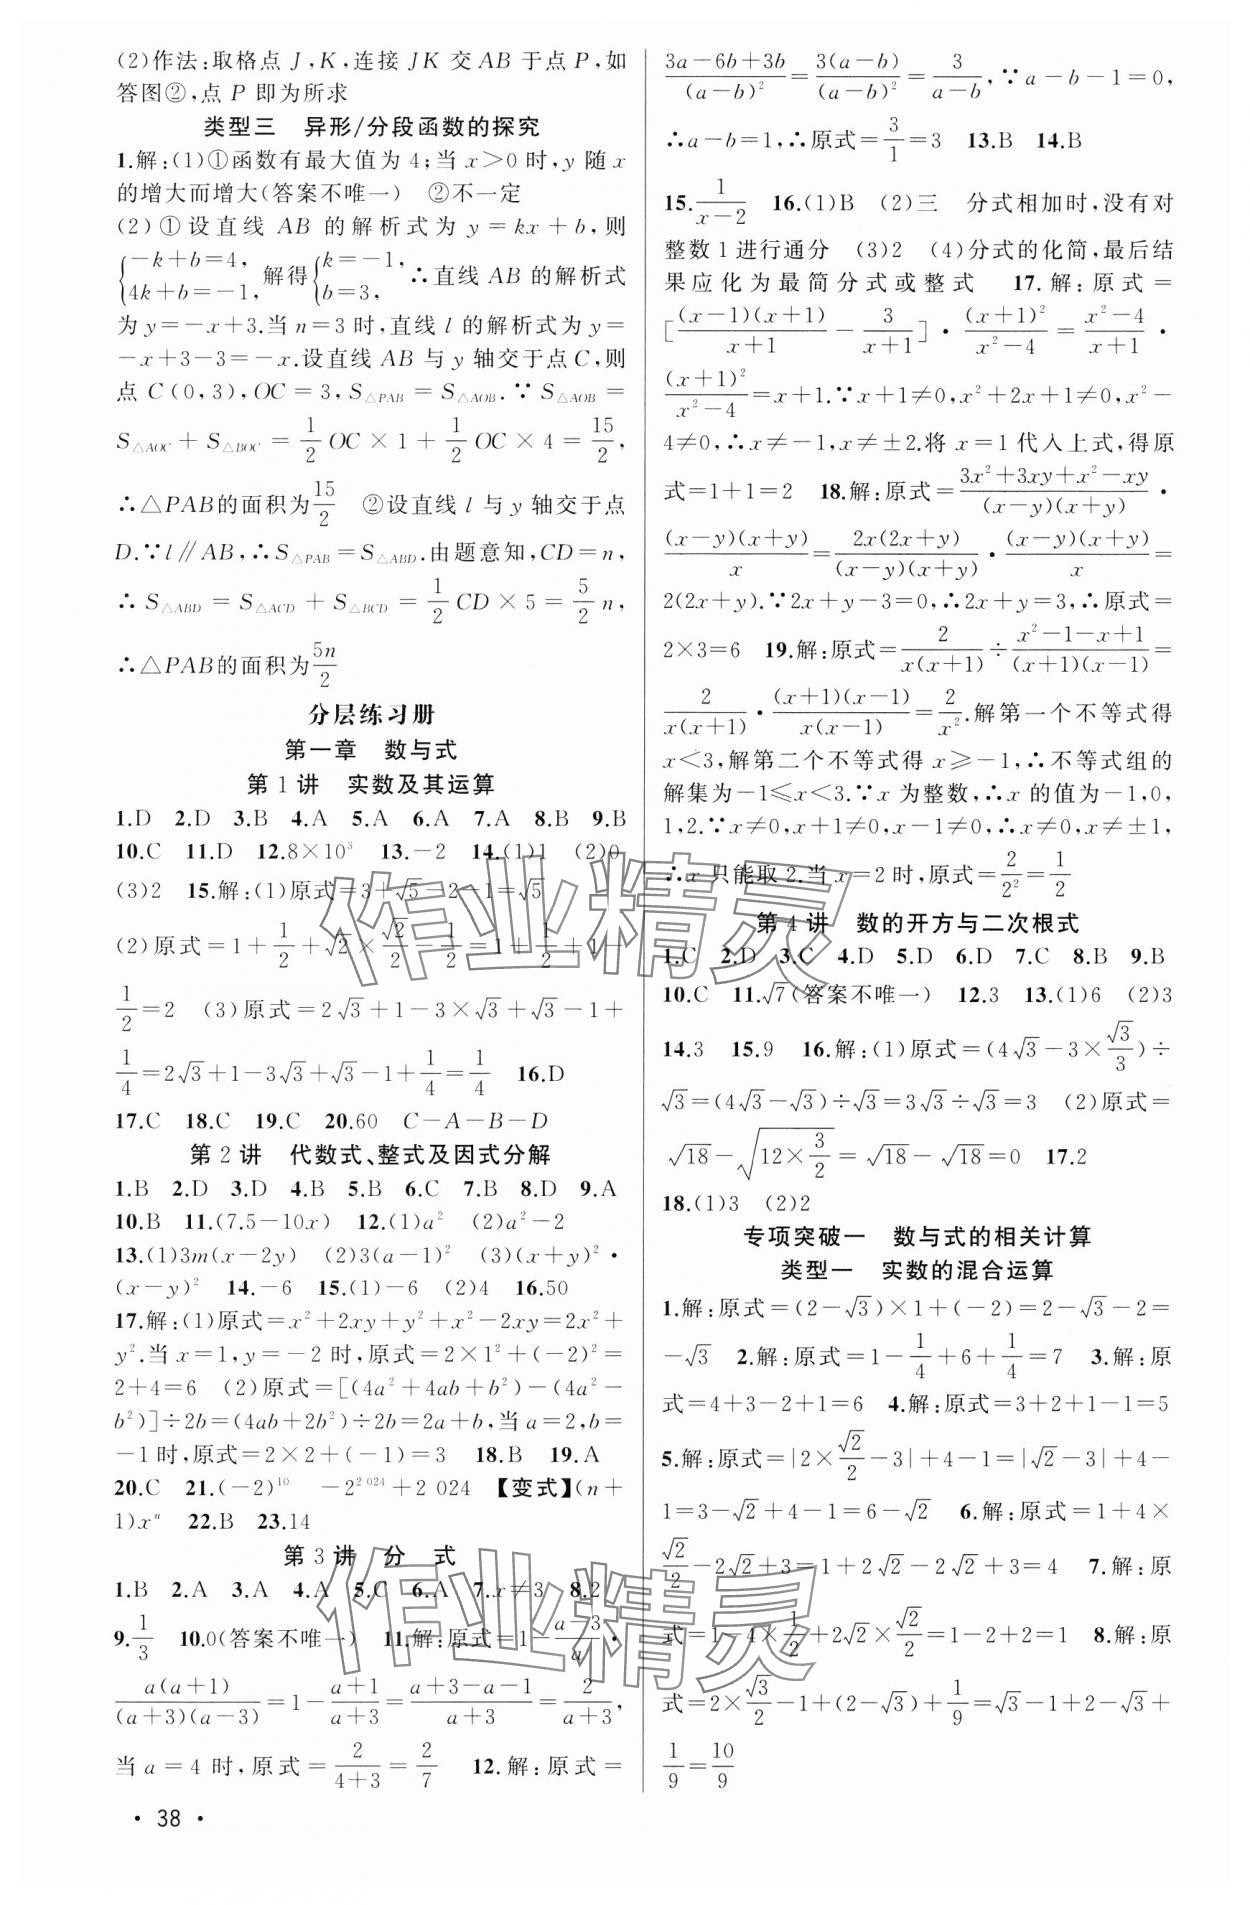 (2)作法:取格点 J,K,连接 JK 交 AB 于点 P,如
答图②,点 P 即为所求
类型三 异形/分段函数的探究
1.解:(1)①函数有最大值为 4;当 x>0 时,y 随 x
的增大而增大(答案不唯一) ②不一定
(2)①设直线 AB 的解析式为 y=kx+b,则
{-k+b=4, 4k+b=-1, 解得{k=-1, b=3, ∴直线 AB 的解析式
为 y=-x+3.当 n=3 时,直线 l 的解析式为 y=
-x+3-3=-x.设直线 AB 与 y 轴交于点 C,则
点 C(0,3),OC=3,S△PAB=S△AOB.∵S△AOB=
S△AOC+S△BOC=1/2 OC×1+1/2 OC×4=15/2,
∴△PAB的面积为15/2 ②设直线 l 与 y 轴交于点
D.∵l∥AB,∴S△PAB=S△ABD.由题意知,CD=n,
∴S△ABD=S△ACD+S△BCD=1/2 CD×5=5/2 n,
∴△PAB的面积为5n/2
分层练习册
第一章 数与式
第 1 讲 实数及其运算
1.D 2.D 3.B 4.A 5.A 6.A 7.A 8.B 9.B
10.C 11.D 12.8×10³ 13.-2 14.(1)1 (2)0
(3)2 15.解:(1)原式=3+√5-2-1=√5
(2)原式=1+1/2+√2×√2/2-1/2=1+1/2+1-
1/2=2 (3)原式=2√3+1-3×√3+√3-1+
1/4=2√3+1-3√3+√3-1+1/4=1/4 16.D
17.C 18.C 19.C 20.60 C-A-B-D
第 2 讲 代数式、整式及因式分解
1.B 2.D 3.D 4.B 5.B 6.C 7.B 8.D 9.A
10.B 11.(7.5-10x) 12.(1)a² (2)a²-2
13.(1)3m(x-2y) (2)3(a-1)² (3)(x+y)²·
(x-y)² 14.-6 15.(1)-6 (2)4 16.50
17.解:(1)原式=x²+2xy+y²+x²-2xy=2x²+
y².当 x=1,y=-2 时,原式=2×1²+(-2)²=
2+4=6 (2)原式=[(4a²+4ab+b²)-(4a²-
b²)]÷2b=(4ab+2b²)÷2b=2a+b,当 a=2,b=
-1时,原式=2×2+(-1)=3 18.B 19.A
20.C 21.(-2)¹⁰ -2²⁰²⁴+2 024 【变式】(n+
1)xⁿ 22.B 23.14
第 3 讲 分 式
1.B 2.A 3.A 4.A 5.C 6.A 7.x≠3 8.2
9.1/3 10.0(答案不唯一) 11.解:原式=1-(a-3)/a·
a(a+1)/((a+3)(a-3))=1-(a+1)/(a+3)=(a+3-a-1)/(a+3)=2/(a+3),
当 a=4 时,原式=2/(4+3)=2/7 12.解:原式=
· 38 ·
(3a-6b+3b)/(a-b)²=3(a-b)/(a-b)²=3/(a-b),∵a-b-1=0,
∴a-b=1,∴原式=3/1=3 13.B 14.B
15.1/(x-2) 16.(1)B (2)三 分式相加时,没有对
整数 1 进行通分 (3)2 (4)分式的化简,最后结
果应化为最简分式或整式 17.解:原式=
[(x-1)(x+1)/(x+1)-3/(x+1)]·(x+1)²/(x²-4)=(x²-4)/(x+1)·
(x+1)²/(x²-4)=x+1.∵x+1≠0,x²+2x+1≠0,x²-
4≠0,∴x≠-1,x≠±2.将 x=1 代入上式,得原
式=1+1=2 18.解:原式=(3x²+3xy+x²-xy)/((x-y)(x+y))·
(x-y)(x+y)/x=2x(2x+y)/((x-y)(x+y))·(x-y)(x+y)/x=
2(2x+y).∵2x+y-3=0,∴2x+y=3,∴原式=
2×3=6 19.解:原式=2/(x(x+1))÷(x²-1-x+1)/((x+1)(x-1))=
2/(x(x+1))·(x+1)(x-1)/(x(x-1))=2/x².解第一个不等式得
x<3,解第二个不等式得 x≥-1,∴不等式组的
解集为-1≤x<3.∵x 为整数,∴x 的值为-1,0,
1,2.∵x≠0,x+1≠0,x-1≠0,∴x≠0,x≠±1,
∴x 只能取 2.当 x=2 时,原式=2/2²=1/2
第 4 讲 数的开方与二次根式
1.C 2.D 3.C 4.D 5.D 6.D 7.C 8.B 9.B
10.C 11.√7(答案不唯一) 12.3 13.(1)6 (2)3
14.3 15.9 16.解:(1)原式=(4√3-3×√3/3)÷
√3=(4√3-√3)÷√3=3√3÷√3=3 (2)原式=
√18-√(12×3/2)=√18-√18=0 17.2
18.(1)3 (2)2
专项突破一 数与式的相关计算
类型一 实数的混合运算
1.解:原式=(2-√3)×1+(-2)=2-√3-2=
-√3 2.解:原式=1-1/4+6+1/4=7 3.解:原
式=4+3-2+1=6 4.解:原式=3+2+1-1=5
5.解:原式=|2×√2/2-3|+4-1=|√2-3|+4-
1=3-√2+4-1=6-√2 6.解:原式=1+4×
√2/2-2√2+3=1+2√2-2√2+3=4 7.解:原
式=1-4×1/2+2√2×√2/2=1-2+2=1 8.解:原
式=2×√3/2-1+(2-√3)+1/9=√3-1+2-√3+
1/9=10/9
作业精灵
作业精灵